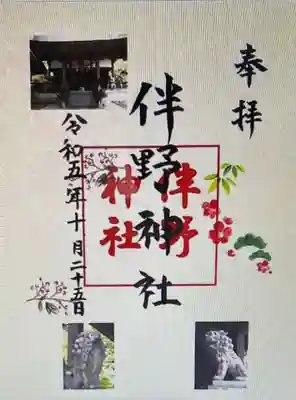 奉拝
伴野神社
津野
神社
令和五年十月二十五日